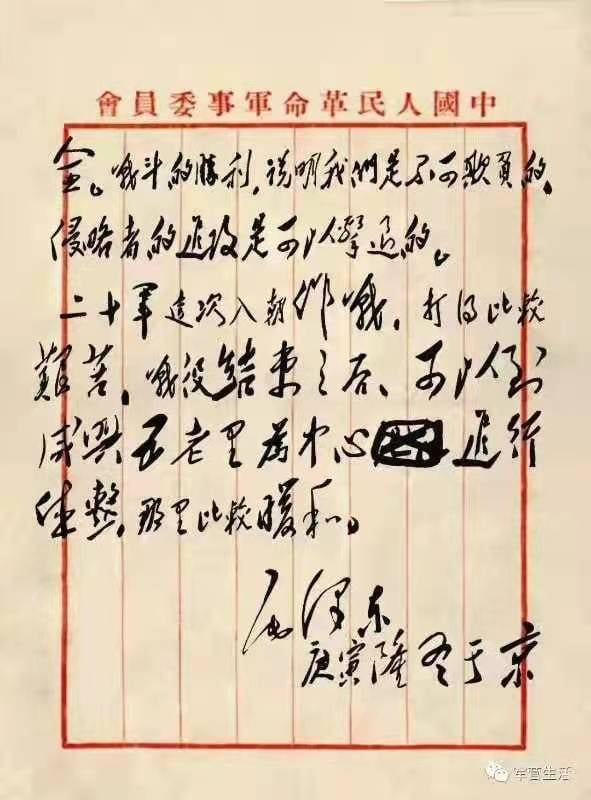 中國人民革命軍事委員會
全。戰斗的勝利,説明我們是不可欺負的,
侵略者的進攻是可以擊退的。
二十軍這次入朝作戰,打得比較
艱苦,戰役結束之后,可以到
咸興五老里爲中心進行
休整,那里比較暖和。
毛泽东
庚寅隆冬于京
军营生活